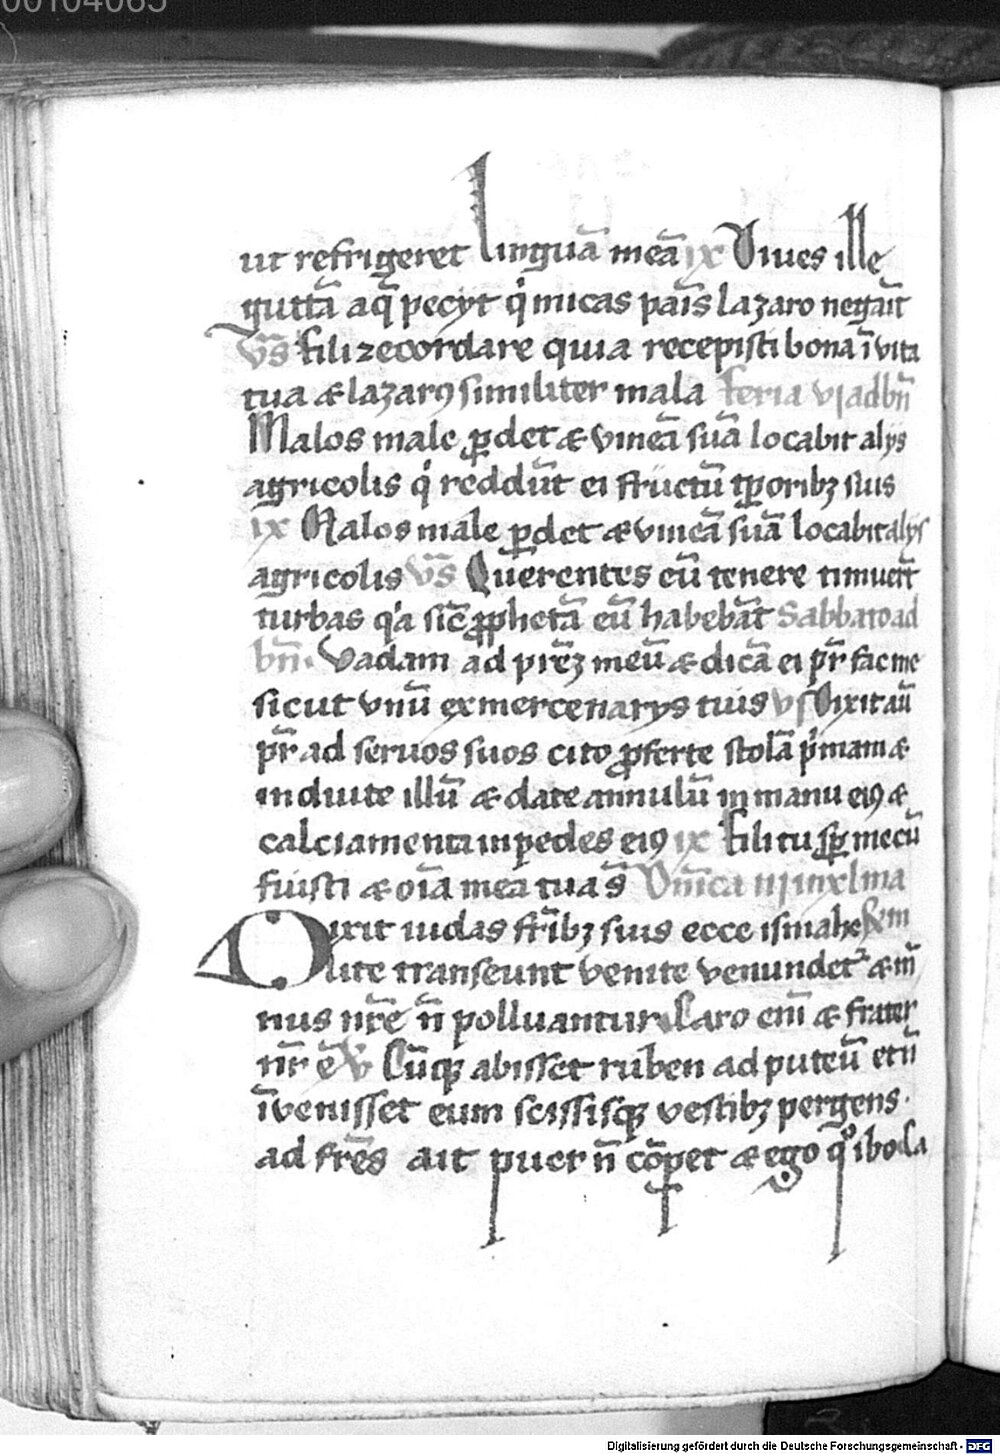 00104065
ut refrigeret linguā meā ix Diues ille
guttā aq̄ pecyt q̇ micas pais̄ lazaro negaūt
vs̄ Fili recordare quia recepisti bona ī vita
tua & lazarꝯ similiter mala feria vj ad bn̄
Malos male ꝑdet & vineā suā locabit alys
agricolis q̇ reddūt ei fructū tꝑoribꝫ suis
ix Malos male ꝑdet & vineā suā locabit alys
agricolis vs̄ Querentes eū tenere timuer̄t
turbas q̇a sic̄ ꝓphetā eū habebāt Sabbato ad
bn̄. Vadam ad pr̄eꝫ meū & dicā ei pr̄ fac me
sicut vnū ex mercenarys tuis vs Dixit aū
pr̄ ad seruos suos cito ꝓferte stolā p̍mam &
induite illū & date annulū in manu eiꝯ &
calciamenta in pedes eiꝯ ix Fili tu sꝑ mecū
fuisti & oīa mea tua s̄ Dn̄ica iij in xlma
Dixit iudas fr̄ibꝫ suis ecce ismahe
lite transeunt venite venundet᷑ & m̄
nus nr̄e n̄ polluantur Caro em̄ & frater
nr̄ ē V Cūqꝫ abisset ruben ad puteū et n̄
īvenisset eum scissisqꝫ vestibꝫ pergens.
ad fr̄es ait puer n̄ cōpet & ego qͦ ibo Ca
Digitalisierung gefördert durch die Deutsche Forschungsgemeinschaft - DFG